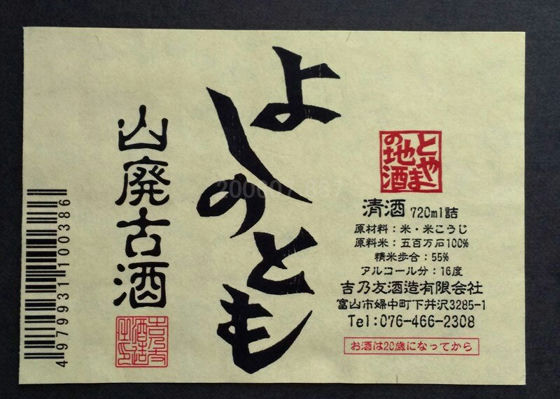 よしのとも
山廃古酒
吉乃友
酒造
之印
とやま
の地酒
清酒 720ml詰
原材料：米・米こうじ
原料米：五百万石100%
精米歩合：55%
アルコール分：16度
吉乃友酒造有限会社
富山市婦中町下井沢3285-1
Tel:076-466-2308
お酒は20歳になってから
4979931100386